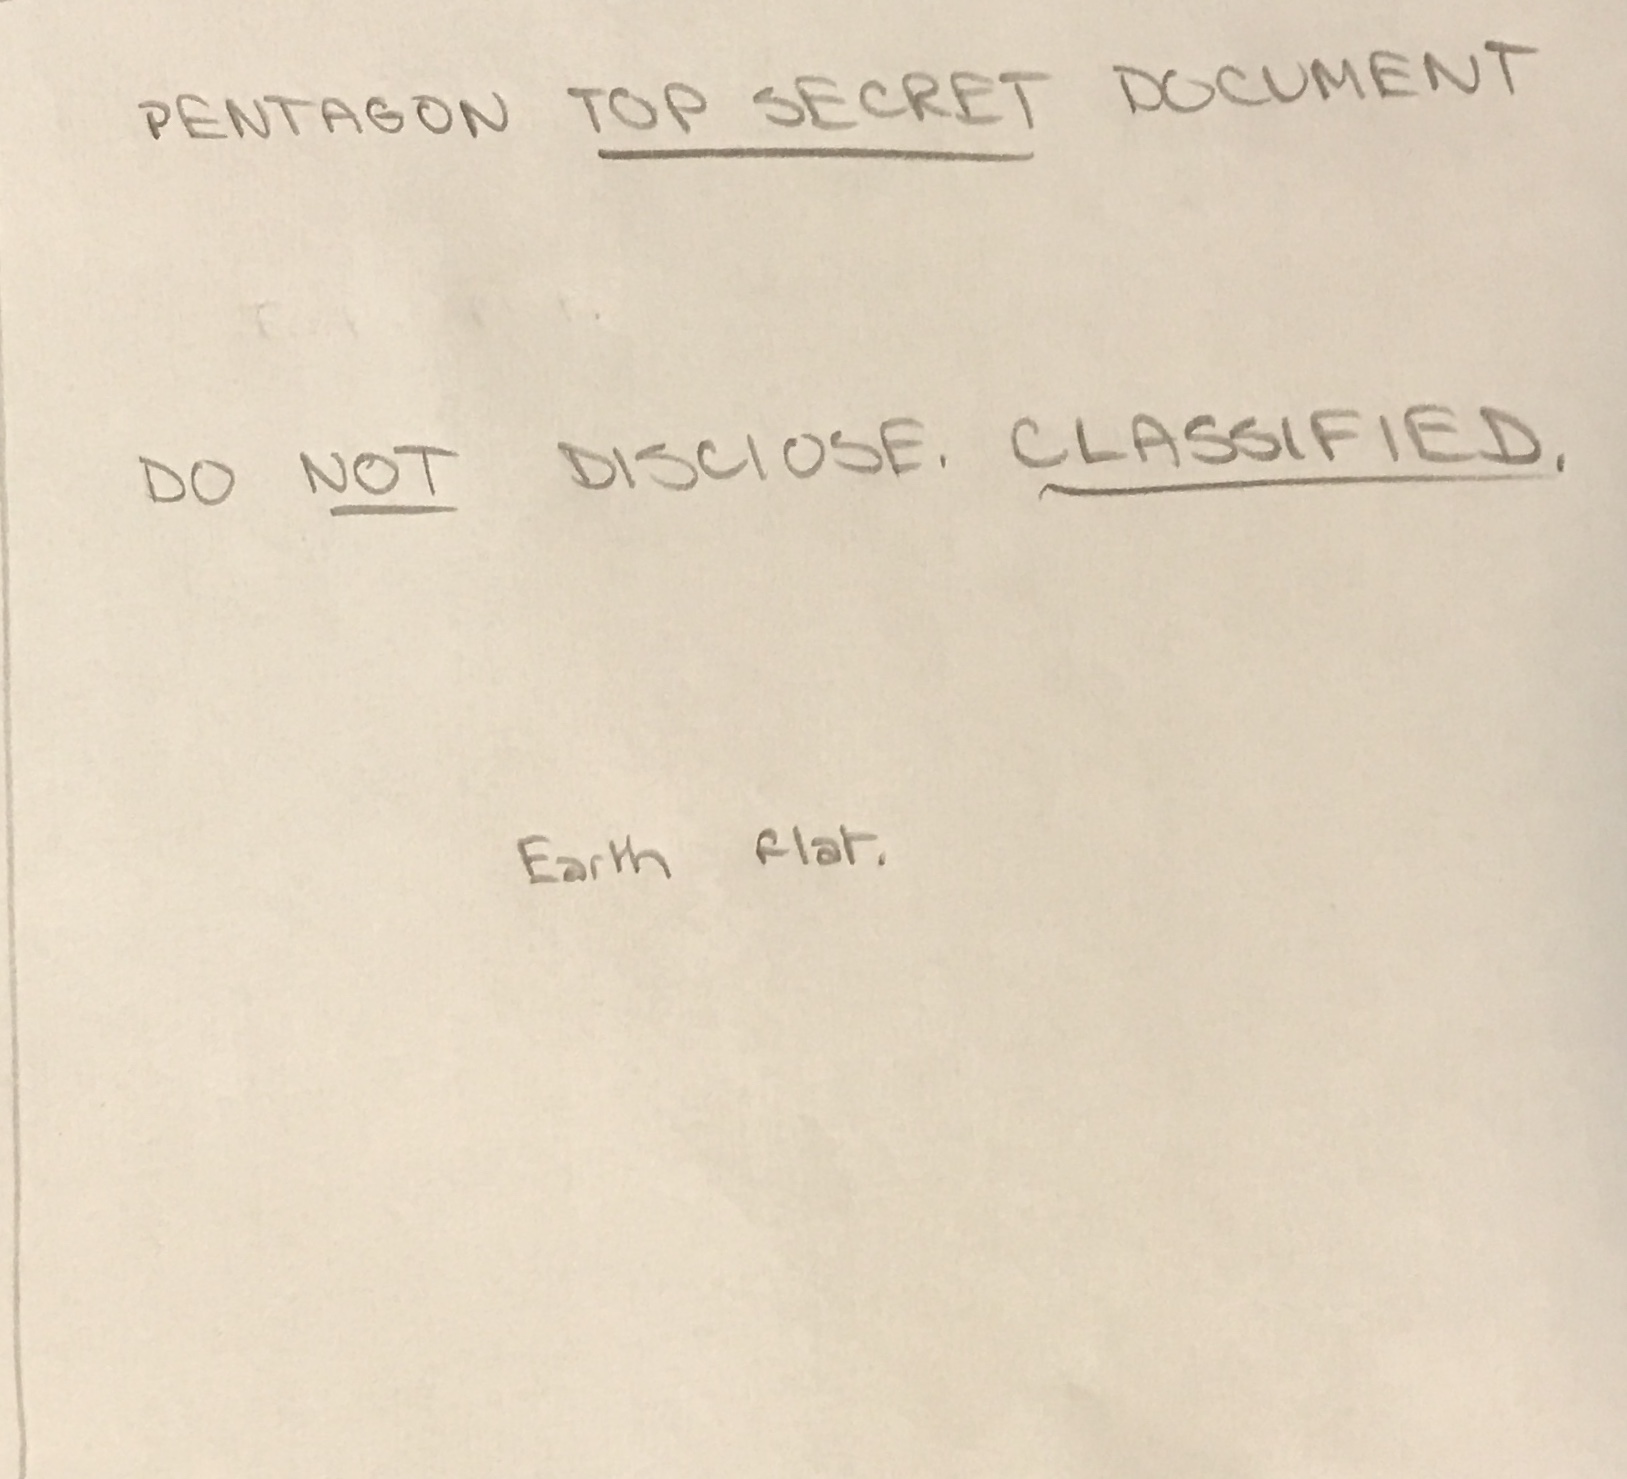 PENTAGON TOP SECRET DOCUMENT
DO NOT DISCLOSE. CLASSIFIED.
Earth flat.